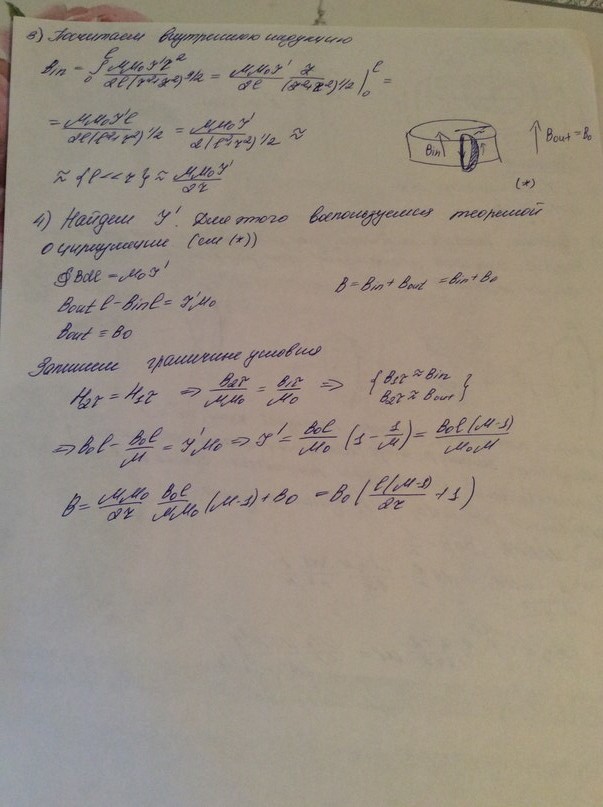 3) Посчитаем внутреннюю индукцию
Bin = ∫₀^ℓ μμ₀I'r²/2ℓ(r²+z²)^3/2 = μμ₀I'/2ℓ z/(r²+z²)^1/2 |₀^ℓ =
= μμ₀I'ℓ/2ℓ(ℓ²+r²)^1/2 = μμ₀I'/2(ℓ²+r²)^1/2 ≈
Bin
Bout = B₀
≈ {ℓ<<r} ≈ μμ₀I'/2r
(*)
4) Найдем I'. Для этого воспользуемся теоремой
о циркуляции (см (*))
∮Bdℓ = μ₀I'
B = Bin + Bout = Bin + B₀
Boutℓ - Binℓ = I'μ₀
Bout = B₀
Запишем граничные условия
H₂τ = H₁τ ⇒ B₂τ/μμ₀ = B₁τ/μ₀ ⇒ {B₁τ ≈ Bin
B₂τ ≈ Bout}
⇒ B₀ℓ - B₀ℓ/μ = I'μ₀ ⇒ I' = B₀ℓ/μ₀ (1 - 1/μ) = B₀ℓ(μ-1)/μ₀μ
B = μμ₀/2r B₀ℓ/μμ₀ (μ-1) + B₀ = B₀(ℓ(μ-1)/2r + 1)